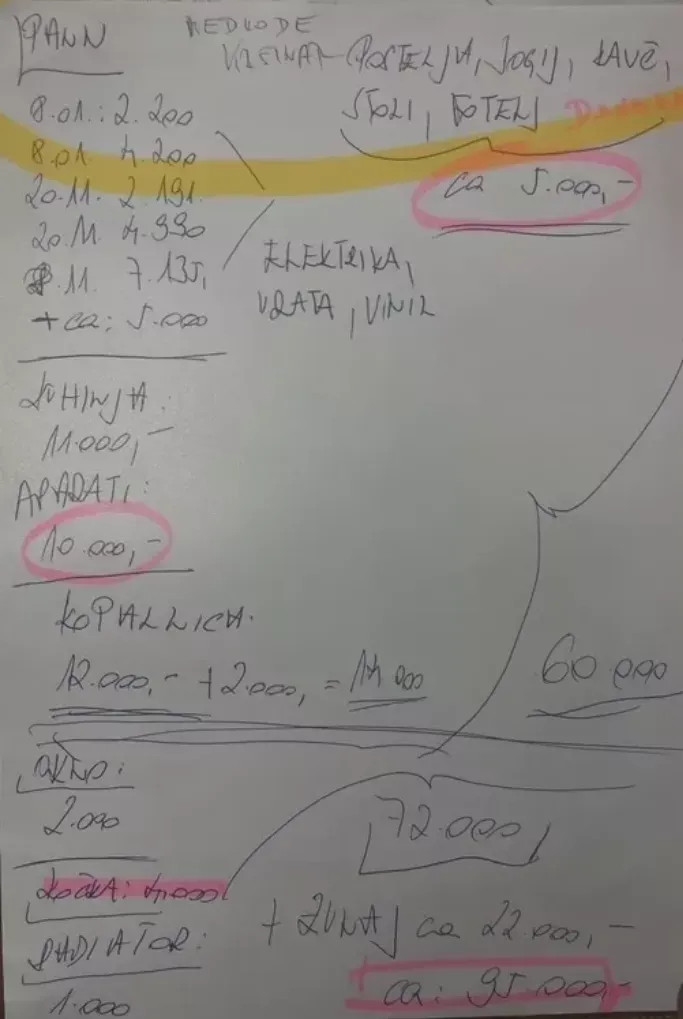 PANN
POSTELJA, JOGIJ, KAVČ,
STOLI, FOTELJ
ca 5.000,-
8.01.: 2.200
8.01 4.200
20.11. 2.191.
20.11 4.990
11. 7.135,
+ ca: 5.000
ELEKTRIKA,
VRATA, VINIL
KUHINJA:
11.000,-
APARATI:
10.000,-
KOPALNICA.
12.000,- + 2.000, = 14 000
60 000
OKNO:
2.000
72.000
KOČKA: 4.000
RADIATOR:
1.000
+ ZUNAJ ca 22.000,-
ca: 95.000,-